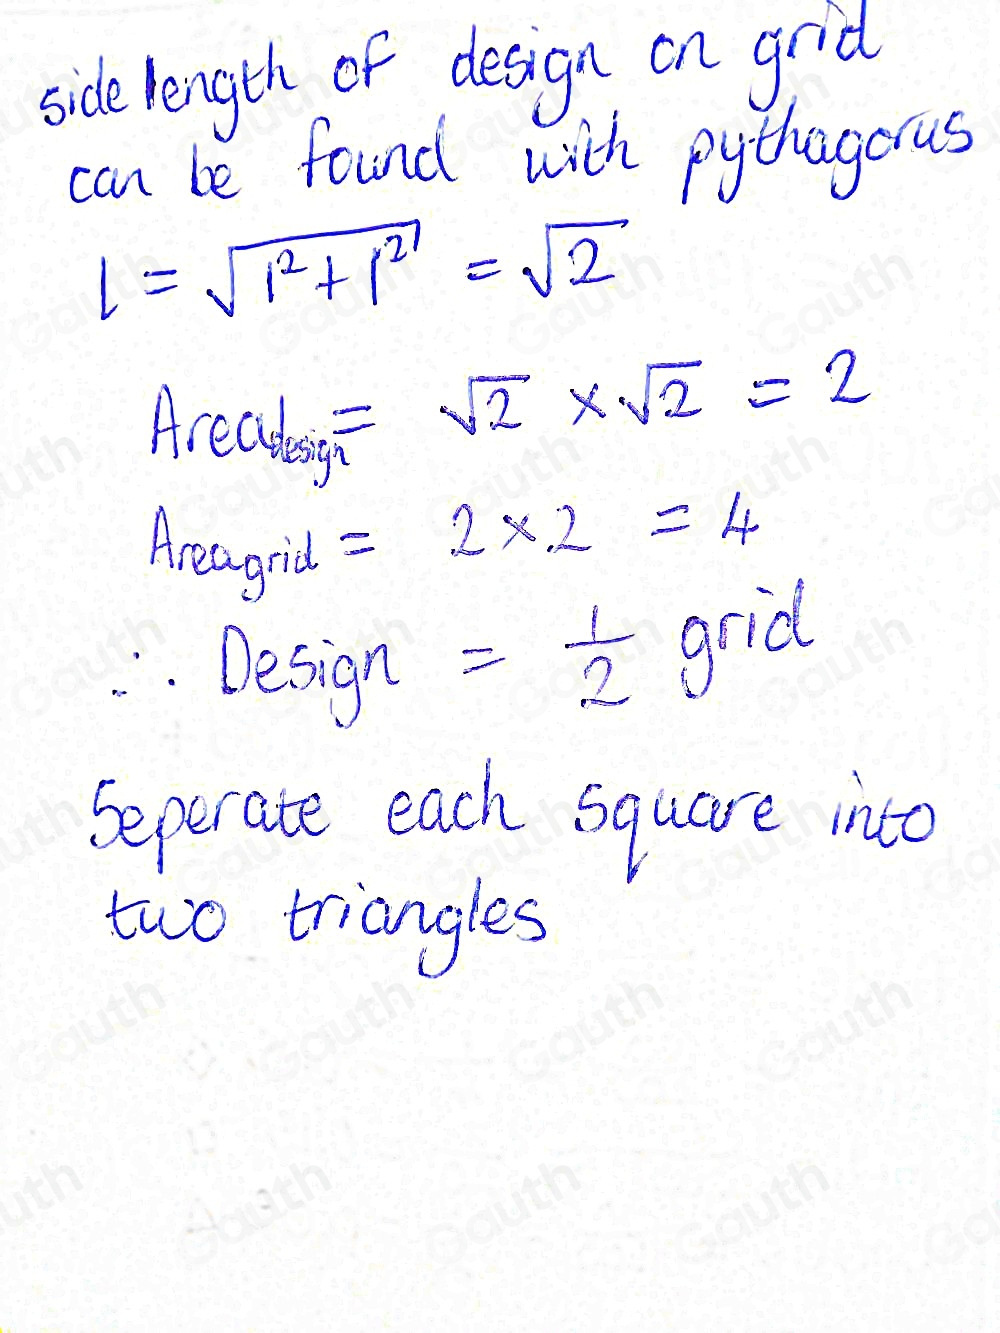 side length of design on grid
can be found with pythagorus
l = √1² + 1² = √2
Area design = √2 × √2 = 2
Area grid = 2 × 2 = 4
∴ Design = 1/2 grid
Seperate each square into
two triangles